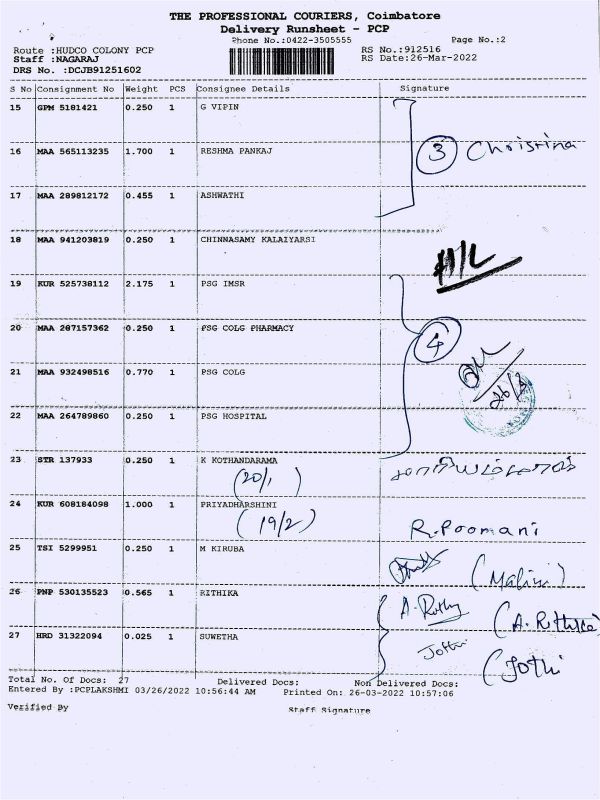 THE PROFESSIONAL COURIERS, Coimbatore
Delivery Runsheet - PCP
Phone No.:0422-3505555 Page No.:2
Route :HUDCO COLONY PCP RS No.:912516
Staff :NAGARAJ RS Date:26-Mar-2022
DRS No. :DCJB91251602
S No Consignment No Weight PCS Consignee Details Signature
15 GPM 5181421 0.250 1 G VIPIN
16 MAA 565113235 1.700 1 RESHMA PANKAJ 3 Christina
17 MAA 289812172 0.455 1 ASHWATHI
18 MAA 941203819 0.250 1 CHINNASAMY KALAIYARSI
19 KUR 525738112 2.175 1 PSG IMSR
20 MAA 287157362 0.250 1 PSG COLG PHARMACY 4
21 MAA 932498516 0.770 1 PSG COLG
26/3
22 MAA 264789860 0.250 1 PSG HOSPITAL
23 STR 137933 0.250 1 K KOTHANDARAMA
(20/1)
24 KUR 608184098 1.000 1 PRIYADHARSHINI
(19/2) R.Poomani
25 TSI 5299951 0.250 1 M KIRUBA
(Malini)
26 PNP 530135523 0.565 1 RITHIKA
27 HRD 31322094 0.025 1 SUWETHA
Jothi (Jothi
Total No. Of Docs: 27 Delivered Docs: Non Delivered Docs:
Entered By :PCPLAKSHMI 03/26/2022 10:56:44 AM Printed On: 26-03-2022 10:57:06
Verified By Staff Signature